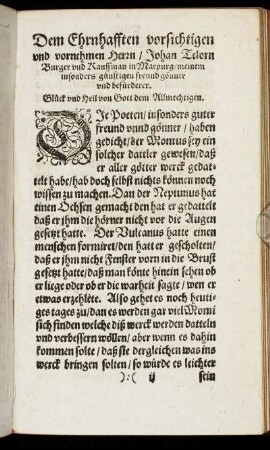 Dem Ehrnhafften vorsichtigen
vnd vornehmen Herrn / Johan Tilorn
Burger vnd Kauffman in Marpurg / meinem
insonders günstigen freund gönner
vnd befürderer.
Glück vnd Heil von Gott dem Allmechtigen.
DIe Poeten / insonders guter
freund vnnd gönner / haben
gedicht / der Momus sey ein
solcher dattler gewesen / daß
er aller götter werck gedat-
telt habe / hab doch selbst nichts können noch
wissen zu machen. Dan der Neptunus hat
einen Ochsen gemacht den hat er gedattelt
daß er jhm die hörner nicht vor die Augen
gesetzt hatte. Der Vulcanus hatte einen
menschen formiret / den hatt er gescholten /
daß er jhm nicht Fenster vorn in die Brust
gesetzt hatte / daß man könte hinein sehen ob
er liege oder ob er die warheit sagte / wen er
etwas erzehlete. Also gehet es noch heuti-
ges tages zu / dan es werden gar viel Momi
sich finden welche diß werck werden datteln
vnd verbessern wöllen / aber wenn es dahin
kommen solte / daß sie dergleichen was ins
werck bringen solten / so würde es leichter
):( ij sein